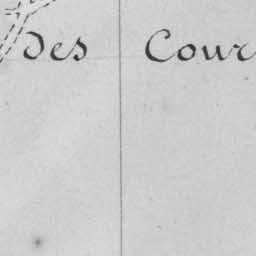 des Cour